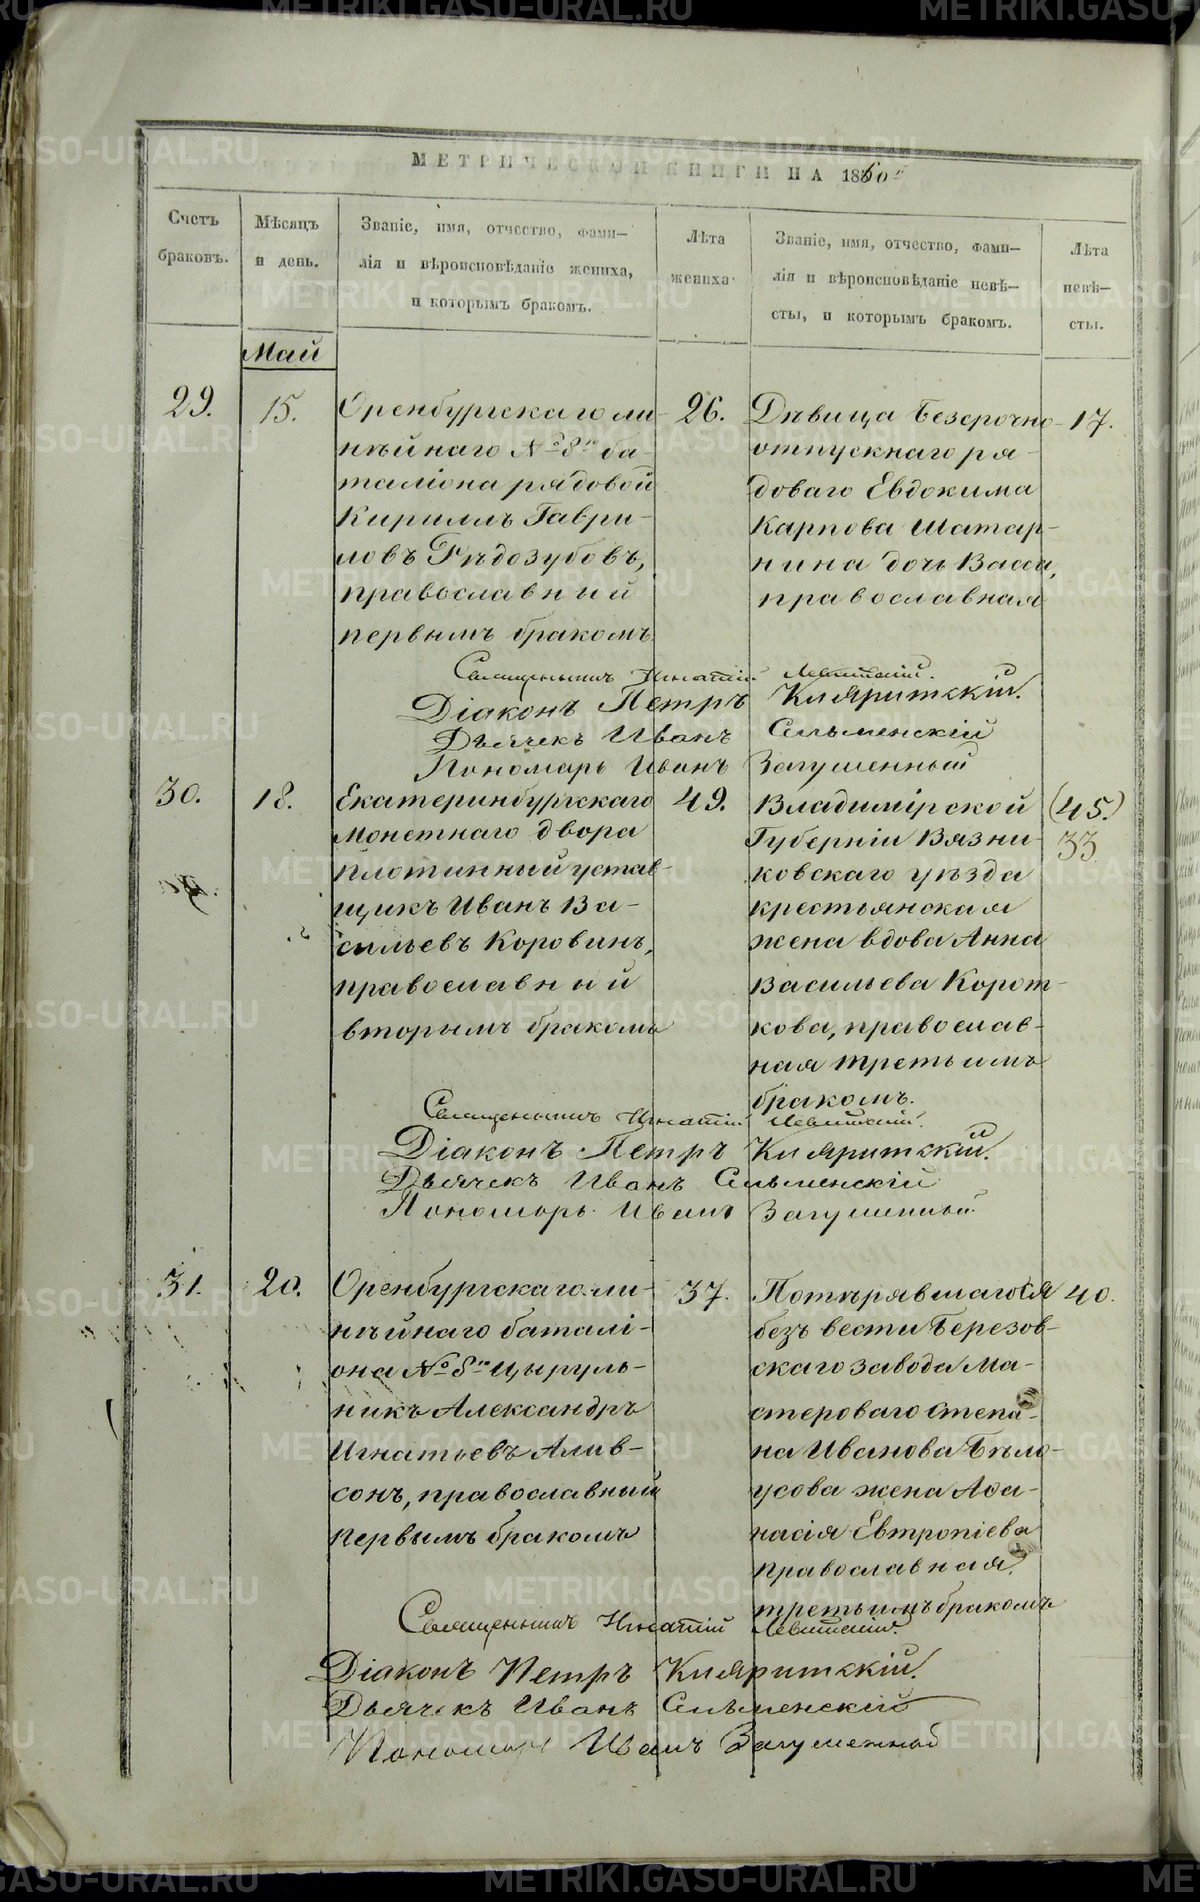 МЕТРИЧЕСКОЙ КНИГИ НА 1860 г
Счетъ браковъ.
Мѣсяцъ и день.
Званіе, имя, отчество, фами-
лія и вѣроисповѣданіе жениха,
и которымъ бракомъ.
Лѣта жениха.
Званіе, имя, отчество, фами-
лія и вѣроисповѣданіе невѣ-
сты, и которымъ бракомъ.
Лѣта невѣ-
сты.
Май
29.
15.
Оренбургскаго ли-
нѣйнаго № 8го ба-
таліона рядовой
Кириллъ Гаври-
ловъ Рѣдозубовъ,
православный
первымъ бракомъ.
26.
Дѣвица безсрочно-
отпускнаго ря-
доваго Евдокима
Карпова Шатар-
нина дочь Васса,
православная
17.
Священникъ Игнатій Левитскій.
Діаконъ Петръ Кияритскій.
Дьячекъ Иванъ Сельменскій
Пономарь Иванъ Загуменный
30.
18.
Екатеринбургскаго
Монетнаго двора
плотинный устав-
щикъ Иванъ Ва-
сильевъ Коровинъ,
православный
вторымъ бракомъ
49.
Владимірской
Губерніи Вязни-
ковскаго уѣзда
крестьянская
жена вдова Анна
Васильева Корот-
кова, православ-
ная третьимъ
бракомъ.
(45.)
33
Священникъ Игнатій Левитскій.
Діаконъ Петръ Кияритскій.
Дьячекъ Иванъ Сельменскій
Пономарь Иванъ Загуменный
31.
20.
Оренбургскаго ли-
нѣйнаго баталі-
она № 8го цыруль-
никъ Александръ
Игнатьевъ Алив-
сонъ, православный
первымъ бракомъ
37.
Потѣрявшагося
безъ вести Березов-
скаго завода Ма-
стероваго Степа-
на Иванова Бѣло-
усова жена Афа-
насія Евтропіева
православная,
третьимъ бракомъ
40.
Священникъ Игнатій Левитскій.
Діаконъ Петръ Кияритскій.
Дьячекъ Иванъ Сельменскій
Пономарь Иванъ Загуменной
METRIKI.GASO-URAL.RU